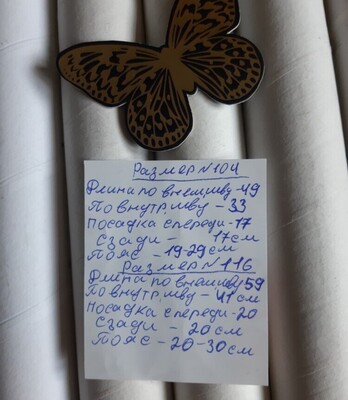 Размер N104
Длина по внеш.шву-49
По внутр.шву - 33
Посадка спереди-17
Сзади - 17см
Пояс - 19-29см
Размер N116
Длина по внеш.шву 59
По внутр.шву - 41см
Посадка спереди-20
Сзади - 20см
Пояс - 20-30см